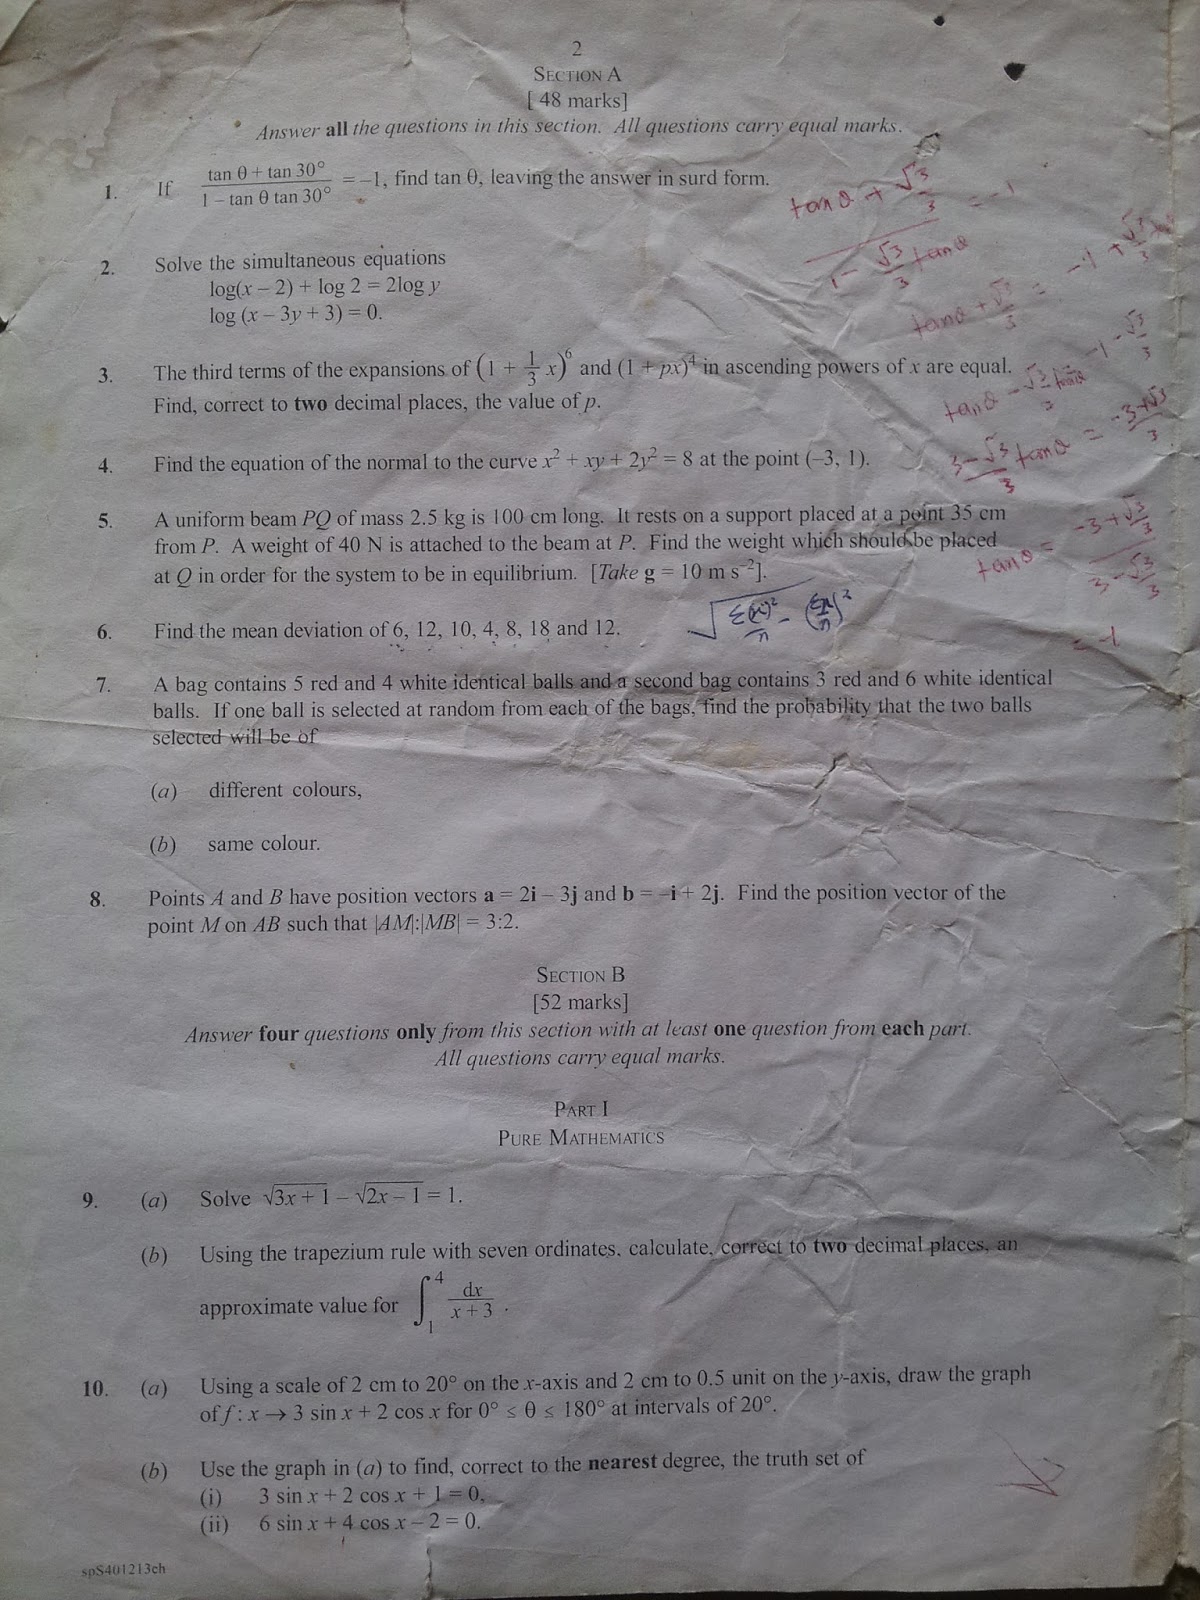 2
SECTION A
[ 48 marks]
Answer all the questions in this section. All questions carry equal marks.
1. If (tan θ + tan 30°)/(1 – tan θ tan 30°) = –1, find tan θ, leaving the answer in surd form.
2. Solve the simultaneous equations
log(x – 2) + log 2 = 2log y
log (x – 3y + 3) = 0.
3. The third terms of the expansions of (1 + 1/3 x)⁶ and (1 + px)⁴ in ascending powers of x are equal.
Find, correct to two decimal places, the value of p.
4. Find the equation of the normal to the curve x² + xy + 2y² = 8 at the point (–3, 1).
5. A uniform beam PQ of mass 2.5 kg is 100 cm long. It rests on a support placed at a point 35 cm
from P. A weight of 40 N is attached to the beam at P. Find the weight which should be placed
at Q in order for the system to be in equilibrium. [Take g = 10 m s⁻²].
6. Find the mean deviation of 6, 12, 10, 4, 8, 18 and 12.
7. A bag contains 5 red and 4 white identical balls and a second bag contains 3 red and 6 white identical
balls. If one ball is selected at random from each of the bags, find the probability that the two balls
selected will be of
(a) different colours,
(b) same colour.
8. Points A and B have position vectors a = 2i – 3j and b = –i + 2j. Find the position vector of the
point M on AB such that |AM|:|MB| = 3:2.
SECTION B
[52 marks]
Answer four questions only from this section with at least one question from each part.
All questions carry equal marks.
PART I
PURE MATHEMATICS
9. (a) Solve √(3x + 1) – √(2x – 1) = 1.
(b) Using the trapezium rule with seven ordinates, calculate, correct to two decimal places, an
approximate value for ∫₁⁴ dx/(x + 3) .
10. (a) Using a scale of 2 cm to 20° on the x-axis and 2 cm to 0.5 unit on the y-axis, draw the graph
of f : x → 3 sin x + 2 cos x for 0° ≤ θ ≤ 180° at intervals of 20°.
(b) Use the graph in (a) to find, correct to the nearest degree, the truth set of
(i) 3 sin x + 2 cos x + 1 = 0,
(ii) 6 sin x + 4 cos x – 2 = 0.
spS401213ch
tan θ + √3/3
1 – √3/3 tan θ
= –1
tan θ + √3/3 = –1 + √3/3
tan θ – √3/3 tan θ = –1 – √3/3
3 – √3/3 tan θ = –3 + √3/3
tan θ = –3 + √3/3
3 – √3/3
= –1